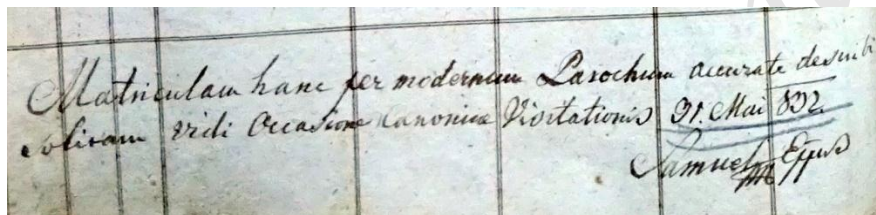 Matriculam hanc per modernum Parochum accurate describi
solitam vidi occasione Canonicae Visitationis 31. Mai 832.
Samuel mp Eppus